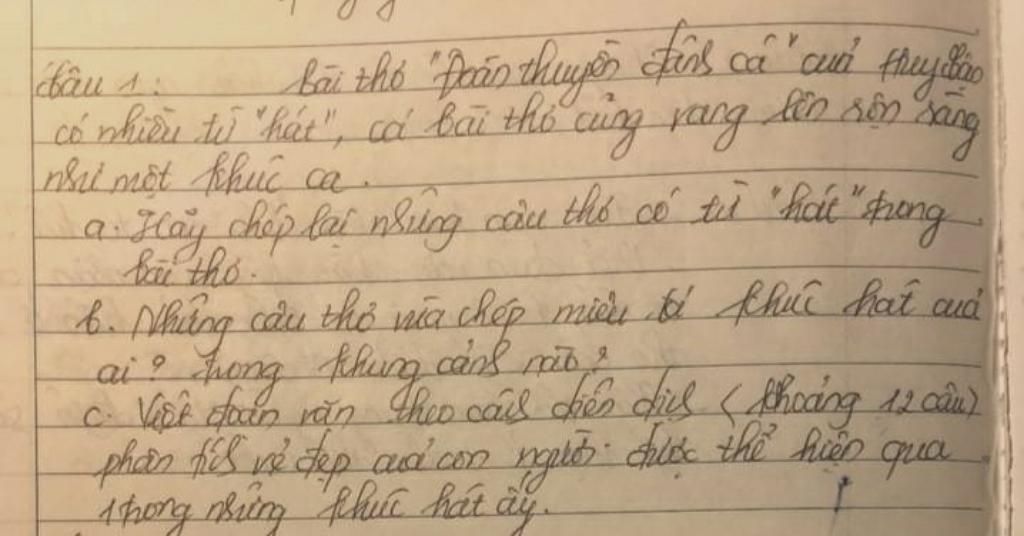 Câu 1: Bài thơ "Đoàn thuyền đánh cá" của Huy Cận
có nhiều từ "hát", cả bài thơ cũng vang lên rộn ràng
như một khúc ca.
a. Hãy chép lại những câu thơ có từ "hát" trong
bài thơ.
b. Những câu thơ vừa chép miêu tả khúc hát của
ai? trong khung cảnh nào?
c. Viết đoạn văn theo cách diễn dịch (khoảng 12 câu)
phân tích vẻ đẹp của con người được thể hiện qua
1 trong những khúc hát ấy.